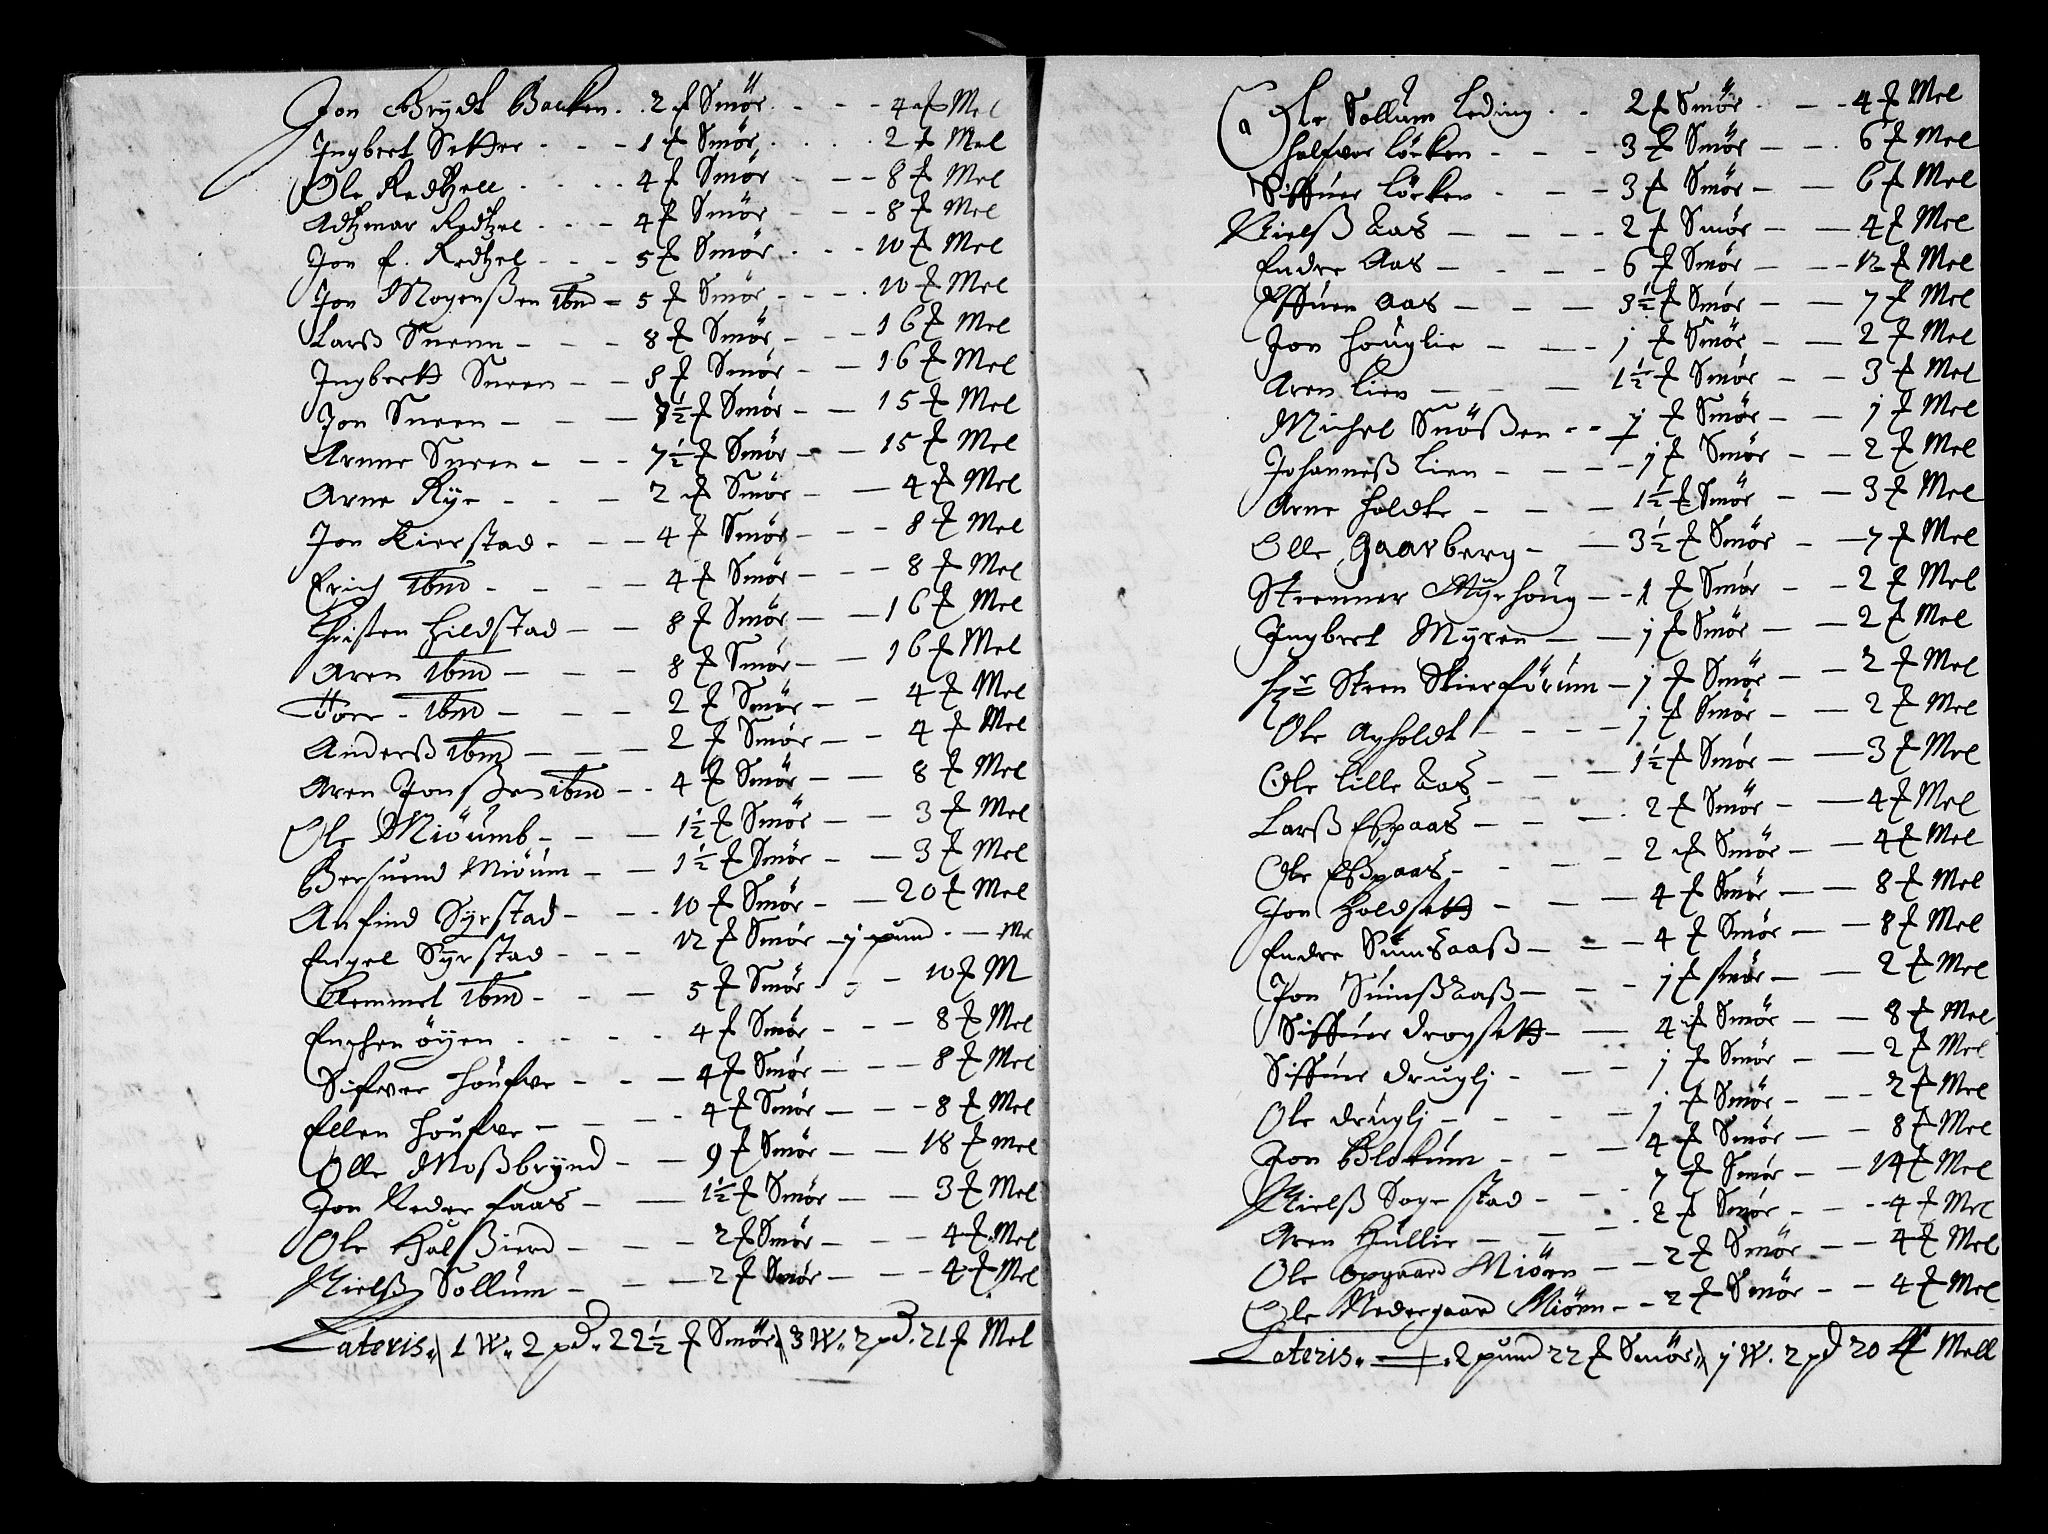 Jon Brydt Backen . . 2 ℔ Smör . - - 4 ℔ Mel
Ingbert Setter - - - 1 ℔ Smör . . . . 2 ℔ Mel
Ole Redtzell . - - - 4 ℔ Smör - - - 8 ℔ Mel
Adtzmar Redtzel - - - 4 ℔ Smör - - - 8 ℔ Mel
Jon E. Redtzel - - - 5 ℔ Smör - - - 10 ℔ Mel
Jon Mogenßen Ibm - 5 ℔ Smör - - - 10 ℔ Mel
Larß Sneen - - - 8 ℔ Smör - - - 16 ℔ Mel
Ingbertt Sneen - - 8 ℔ Smör - - 16 ℔ Mel
Jon Sneen - - - 7½ ℔ Smör - - 15 ℔ Mel
Arnne Sneen - - - 7½ ℔ Smör - - 15 ℔ Mel
Arne Rye - - - 2 ℔ Smör - - 4 ℔ Mel
Jon Kierstad - - - 4 ℔ Smör - - - 8 ℔ Mel
Erich Ibm - - - 4 ℔ Smör - - - 8 ℔ Mel
Christen Hildstad - - 8 ℔ Smör - - 16 ℔ Mel
Aren Ibm - - - 8 ℔ Smör - - 16 ℔ Mel
Tore - Ibm - - - 2 ℔ Smör - - 4 ℔ Mel
Anderß Ibm - - - 2 ℔ Smör - - 4 ℔ Mel
Aren Jonßen Ibm - - 4 ℔ Smör - - 8 ℔ Mel
Ole Miöumb - - - 1½ ℔ Smör - - 3 ℔ Mel
Bersuend Miöum - - 1½ ℔ Smör - - 3 ℔ Mel
Anfind Syrstad - - - 10 ℔ Smör - - 20 ℔ Mel
Engel Syrstad - - - 12 ℔ Smör - j pund . - Me
Clemmet Ibm - - - 5 ℔ Smör - - - 10 ℔ M
Enghen öyen . - - - 4 ℔ Smör - - - 8 ℔ Mel
Sifver Houfve - - - 4 ℔ Smör - - - 8 ℔ Mel
Ellen Houfve - - - 4 ℔ Smör - - - 8 ℔ Mel
Olle Moßbrynd - - 9 ℔ Smör - - 18 ℔ Mel
Jon Neder faas - - 1½ ℔ Smör - - 3 ℔ Mel
Ole Halßierd - - - 2 ℔ Smör - - - 4 ℔ Mel
Nielß Sollum - - - 2 ℔ Smör - - - 4 ℔ Mel
Lateris 1 W. 2 pd. 22½ ℔ Smör 3 W. 2 pd. 21 ℔ Mel
Ole Sollum Leding . . 2 ℔ Smör - - 4 ℔ Mel
Halfvor Löcken - - - 3 ℔ Smör - - 6 ℔ Mel
Siffuer Löcken - - - 3 ℔ Smör - - 6 ℔ Mel
Nielß Aas - - - - 2 ℔ Smör - - 4 ℔ Mel
Endre Aas - - - - 6 ℔ Smör - - 12 ℔ Mel
Effuen Aas - - - 3½ ℔ Smör - - 7 ℔ Mel
Jon Houglie - - - j ℔ Smör - - 2 ℔ Mel
Aren Lien - - - 1½ ℔ Smör - - 3 ℔ Mel
Michel Snößen - - j ℔ Smör - - j ℔ Mel
Johanneß Lien - - - j ℔ Smör - - 2 ℔ Mel
Arne Holdte - - - 1½ ℔ Smör - - 3 ℔ Mel
Olle Gaarberg - - 3½ ℔ Smör - - 7 ℔ Mel
Stenner Myrhoug - - 1 ℔ Smör - - 2 ℔ Mel
Ingbert Myren - - j ℔ Smör - - 2 ℔ Mel
Hr Sten Skierförum - j ℔ Smör - - 2 ℔ Mel
Ole Agholdt - - - j ℔ Smör - - 2 ℔ Mel
Ole Lille Aas - - - 1½ ℔ Smör - - 3 ℔ Mel
Larß Eßpaas - - - 2 ℔ Smör - - 4 ℔ Mel
Ole Eßpaas - - - - 2 ℔ Smör - - 4 ℔ Mel
Jon Holdsett - - - 4 ℔ Smör - - 8 ℔ Mel
Endre Suinsaaß - - - 4 ℔ Smör - - 8 ℔ Mel
Jon Suinßaaß - - - j ℔ Smör - - 2 ℔ Mel
Siffuer Drogsett - - 4 ℔ Smör - - 8 ℔ Mel
Siffuer Druglj - - - j ℔ Smör - - 2 ℔ Mel
Ole Druglj - - - - j ℔ Smör - - - 2 ℔ Mel
Jon Blokum - - - 4 ℔ Smör - - 8 ℔ Mel
Nielß Sogestad - - - 7 ℔ Smör - - 14 ℔ Mel
Aren Hullie - - - 2 ℔ Smör - - - 4 ℔ Mel
Ole Opgaard Miöen - - 2 ℔ Smör - - 4 ℔ Mel
Ole Nedergaard Miöen - - 2 ℔ Smör - - 4 ℔ Mel
Lateris - 2 pund 22 ℔ Smör j W. 2 pd 20 ℔ Mell